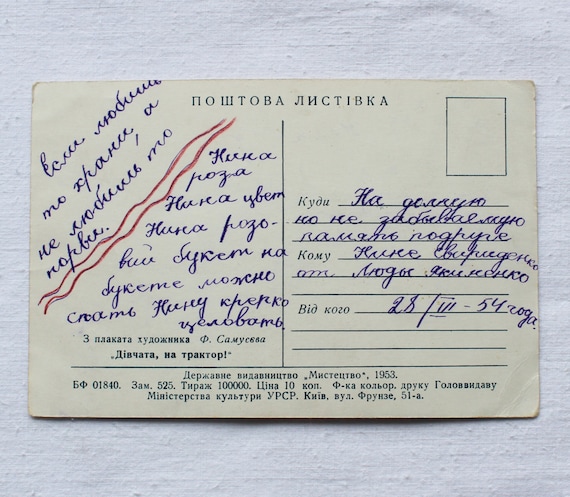 ПОШТОВА ЛИСТІВКА
если любишь
то храни, а
не любишь то
порви.
Нина
роза
Нина цвет
Нина розо-
вий букет на
букете можно
спать Нину крепко
целовать.
З плаката художника Ф. Самусєва
„Дівчата, на трактор!"
Куди На долгую
но не забываемую
память подруге
Кому Нине Свириденко
от Люды Якименко
Від кого 28/III-54 года.
Державне видавництво „Мистецтво", 1953.
БФ 01840. Зам. 525. Тираж 100000. Ціна 10 коп. Ф-ка кольор. друку Головвидаву
Міністерства культури УРСР. Київ, вул. Фрунзе, 51-а.